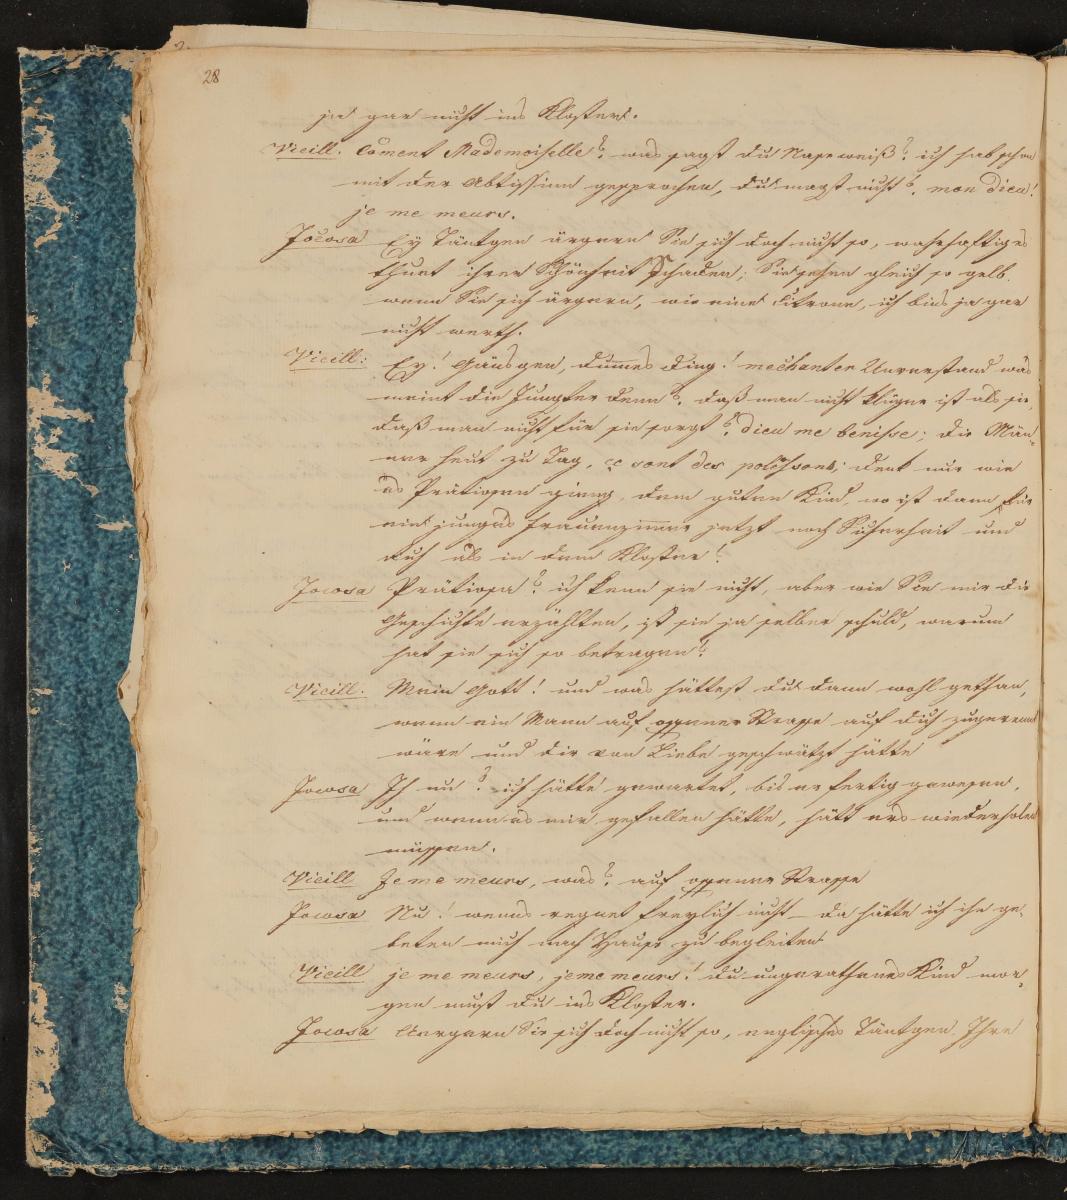 28
ja gar nicht ins Kloster.
Vieill. Coment Mademoiselle? was sagst du Naseweiß? ich hab schon
mit der Abtissinn gesprochen, du magst nicht? mon dieu!
je me meurs.
Jocosa Ey Täntgen ärgern Sie sich doch nicht so, wahrhaftig es
thut ihrer Schönheit Schaden; Sie sehen gleich so gelb
wenn Sie sich ärgern, wie eine Citrone, ich bins ja gar
nicht werth.
Vieill: Ey! Gänsgen, dummes Ding! mechanten Unverstand was
meint die Jungfer denn? daß man nicht klüger ist als sie,
daß man nicht für sie sorgt? dieu me benisse; die Män-
ner heut zu Tag, ce sont des polissons; denk nur wie
es Prätiosen gieng, dem guten Kind, wo ist dann für
ein junges Frauenzimmer jetzt noch Sicherheit und
Ruh als in dem Kloster?
Jocosa Prätiosa? ich kenn sie nicht, aber wie Sie mir die
Geschichte erzählten, ist sie ja selber schuld, warum
hat sie sich so betragen?
Vieill. Mein Gott! und was hättest du dann wohl gethan,
wenn ein Mann auf offener Strasse auf dich zugerennt
wäre und dir von Liebe geschwätzt hätte
Jocosa Ih nu? ich hätte gewartet, bis er fertig gewesen,
und wenn es mir gefallen hätte, hätt ers wiederholen
müssen.
Vieill Je me meurs, was? auf offener Strasse
Jocosa Nu! wenns regnet freylich nicht – da hätte ich ihn ge-
beten mich nach Hause zu begleiten
Vieill je me meurs, je me meurs! du ungerathenes Kind mor-
gen must du ins Kloster.
Jocosa Aergern Sie sich doch nicht so, englisches Täntgen, Ihre